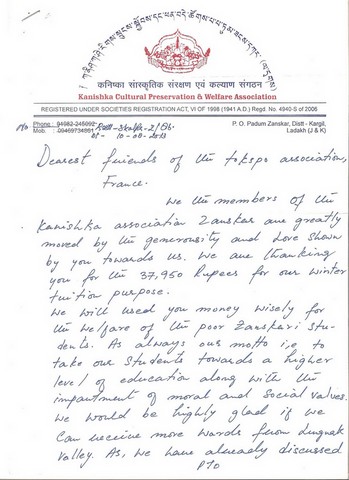 कनिष्का सांस्कृतिक संरक्षण एवं कल्याण संगठन
Kanishka Cultural Preservation & Welfare Association
REGISTERED UNDER SOCIETIES REGISTRATION ACT, VI OF 1998 (1941 A.D.) Regd. No. 4940-S of 2006
Phone : 01982-245092
Mob. : 09469734891
dt- 10-08-2013
P. O. Padum Zanskar, Distt - Kargil,
Ladakh (J & K)
Dearest friends of the tokepo association,
France.
We the members of the
Kanishka association Zanskar are greatly
moved by the generousity and love shown
by you towards us. We are thanking
you for the 37,950 Rupees for our winter
tuition purpose.
We will used you money wisely for
the welfare of the poor Zanskari stu-
dents. As always our motto i.e, to
take our students towards a higher
level of education along with the
impartment of moral and social values.
We would be highly glad if we
Can receive more wards from Lungnak
valley. As, we have already discussed
PTO